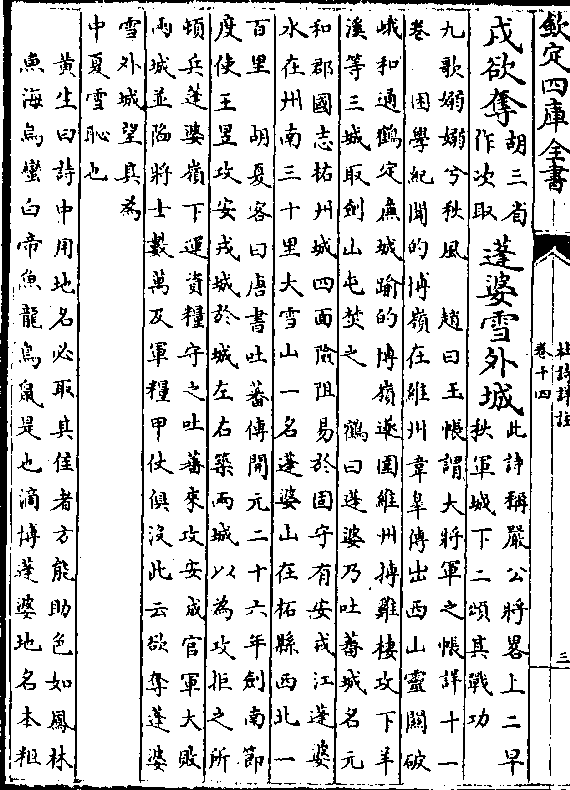 欽定四庫全書
杜詩詳註
卷十四
三
戍欲奪
胡三省
作次取
蓬婆雪外城
此詩稱嚴公將畧上二早
秋軍城下二頌其戰功
九歌嫋嫋兮秋風 趙曰玉帳謂大將軍之帳詳十一
卷 困學紀聞的博嶺在維州韋皐傳出西山靈關破
峨和通鶴定廉城踰的博嶺遂圍維州搏雞棲攻下羊
溪等三城取劍山屯焚之 鶴曰蓬婆乃吐蕃城名元
和郡國志柘州城四面險阻易於固守有安戎江蓬婆
水在州南三十里大雪山一名蓬婆山在柘縣西北一
百里 胡夏客曰唐書吐蕃傳開元二十六年劍南節
度使王昱攻安戎城於城左右築兩城以為攻拒之所
頓兵蓬婆嶺下運資糧守之吐蕃來攻安戎官軍大敗
兩城並陷將士數萬及軍糧甲仗俱沒此云欲奪蓬婆
雪外城望其為
中夏雪恥也
黄生曰詩中用地名必取其佳者方能助色如鳳林
魚海烏蠻白帝魚龍鳥鼠是也滴博蓬婆地名本粗